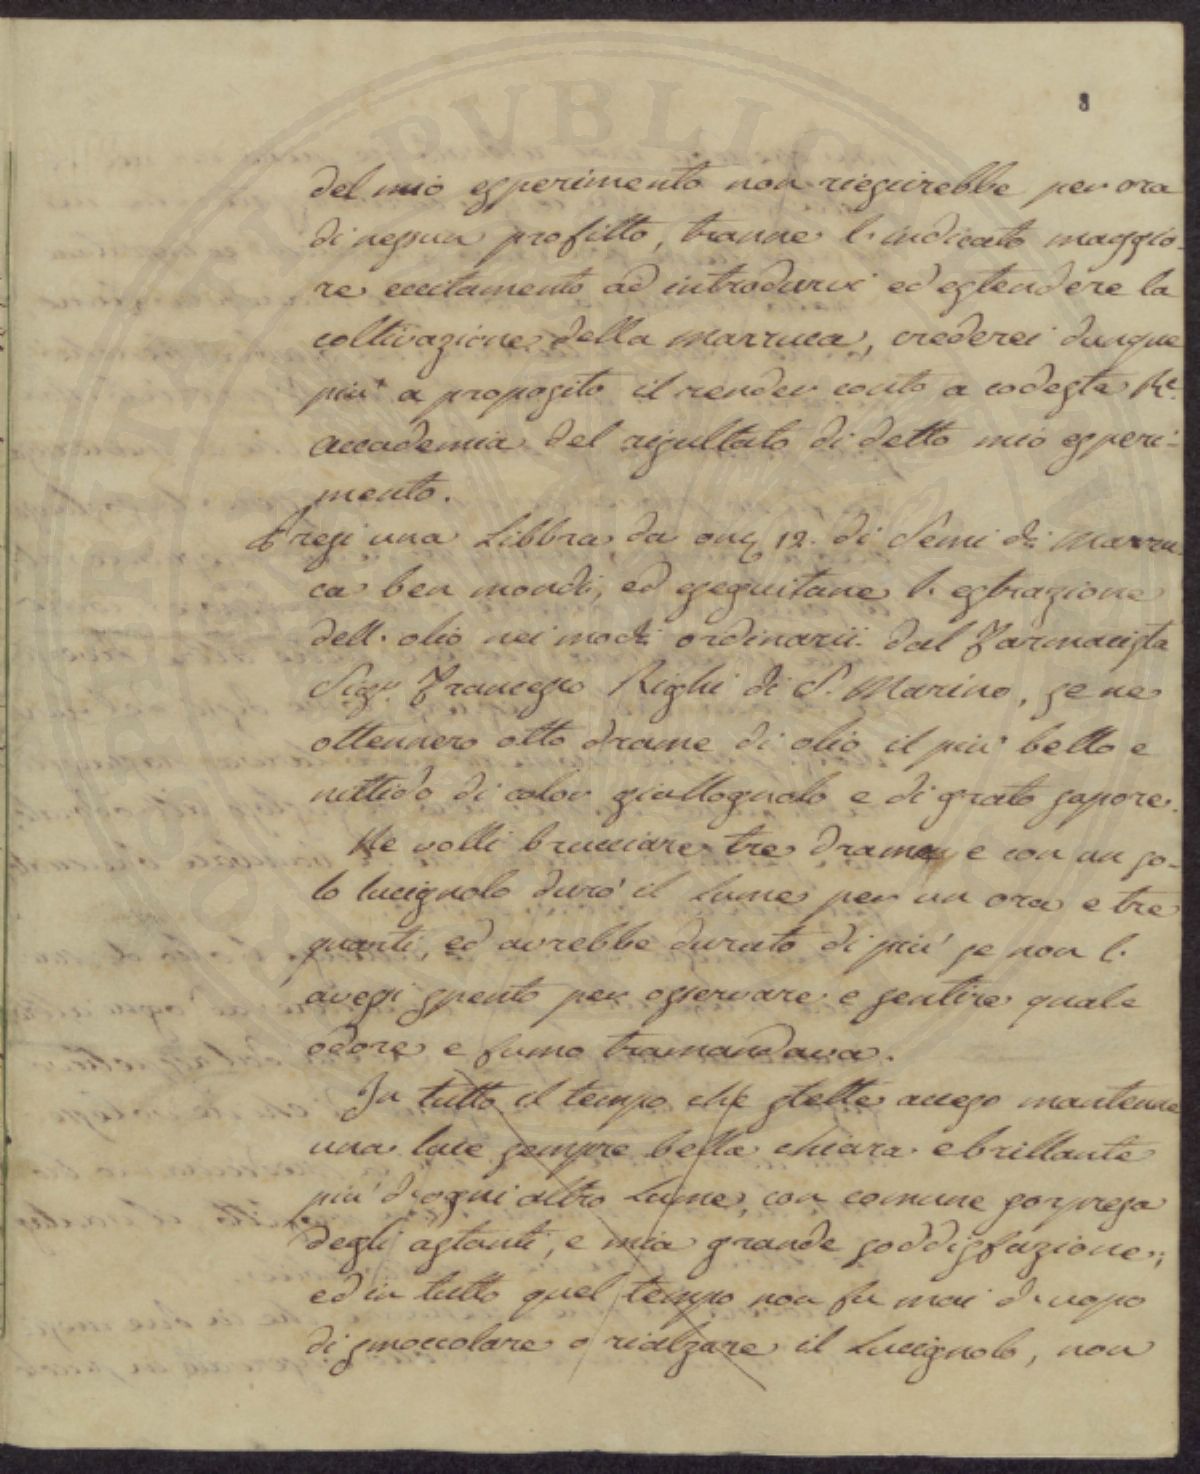 8
del mio esperimento non riescirebbe per ora
di nessun profitto, tranne l'indicato maggio-
re eccitamento ad introdurvi ed estendere la
coltivazione della marruca, crederei dunque
più a proposito il render conto a codesta Rle
Accademia del risultato di detto mio esperi-
mento.
Presi una Libbra da onc 12. di Semi di Marru
ca ben mondi, ed eseguitane l'estrazione
dell'olio nei modi ordinarii dal Farmacista
Sigr. Francesco Righi di S. Marino, se ne
ottennero otto drame di olio il più bello e
nittido di color giallognolo e di grato sapore.
Ne volli brucciare tre drame e con un so-
lo lucignolo durò il Lume per un ora e tre
quarti, ed avrebbe durato di più se non l'
avessi spento per osservare e sentire quale
odore e fumo tramandava.
In tutto il tempo che stette acceso mantenne
una luce sempre bella chiara e brillante
più d'ogni altro Lume, con comune sorpresa
degli astanti, e mia grande soddisfazione;
ed in tutto quel tempo non fu mai d'uopo
di smoccolare o rialzare il Lucignolo, non